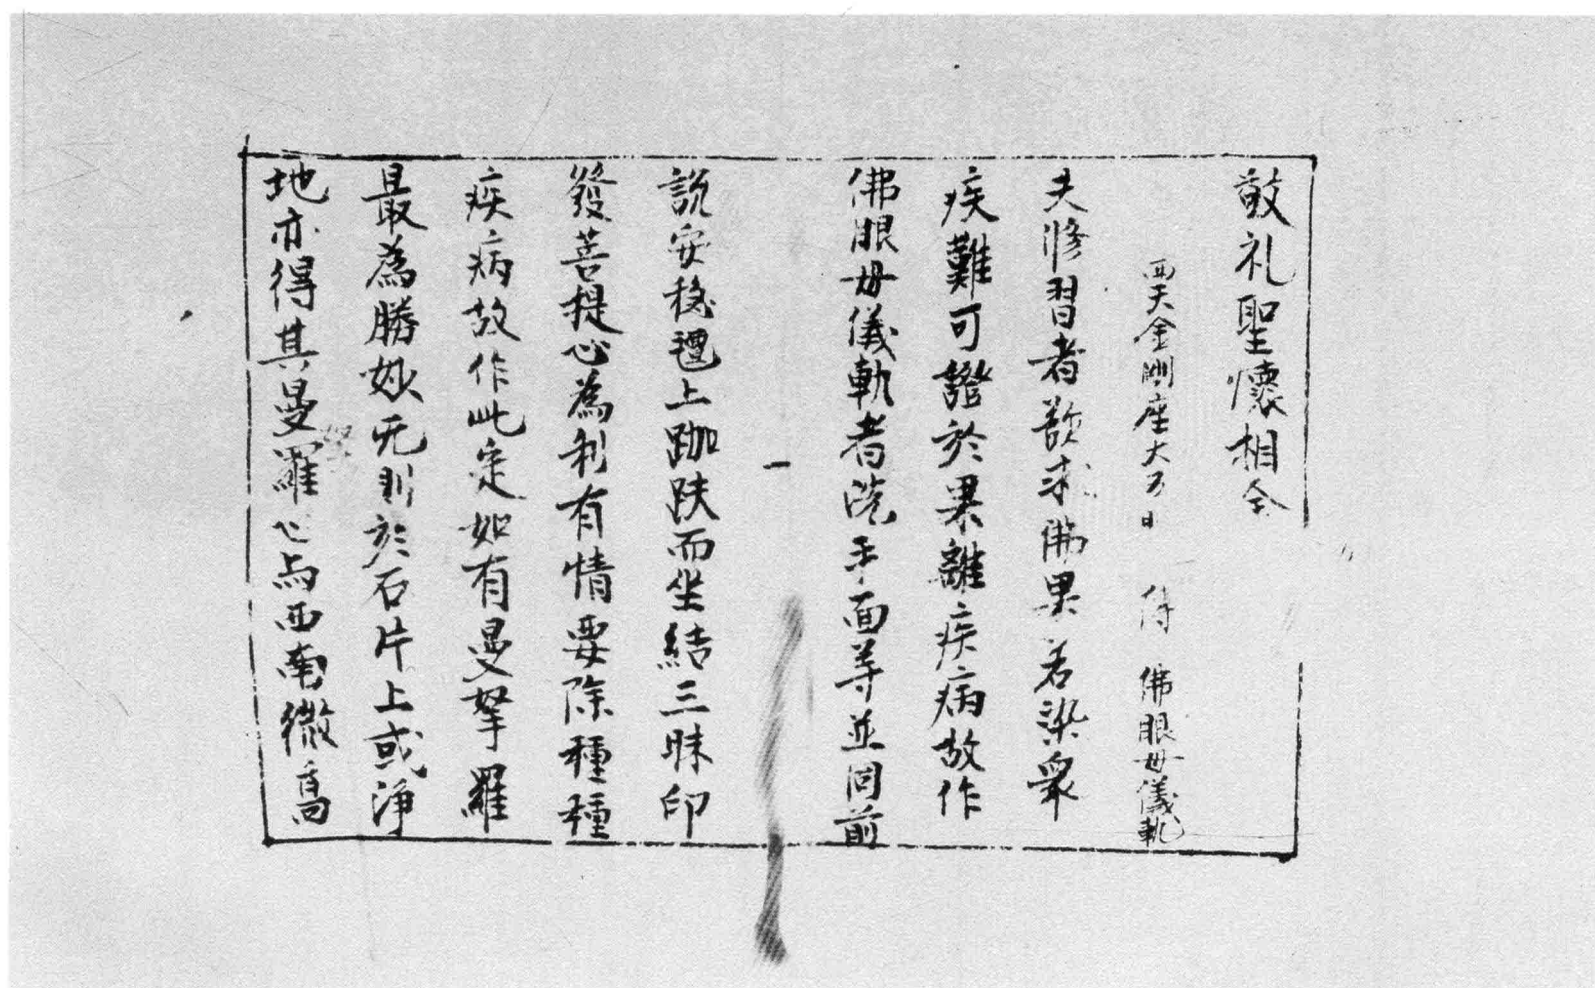 敬礼聖懷相
西天金剛座大 傳 佛眼母儀軌
夫修習者欲求佛果若染衆
疾難可證於果離疾病故作
佛眼母儀軌者洗手面等並同前
說安穩氊上跏趺而坐結三昧印
發菩提心為利有情要除種種
疾病故作此定如有曼拏羅
最為勝妙无則於石片上或淨
地亦得其曼羅心与西南微高
拏